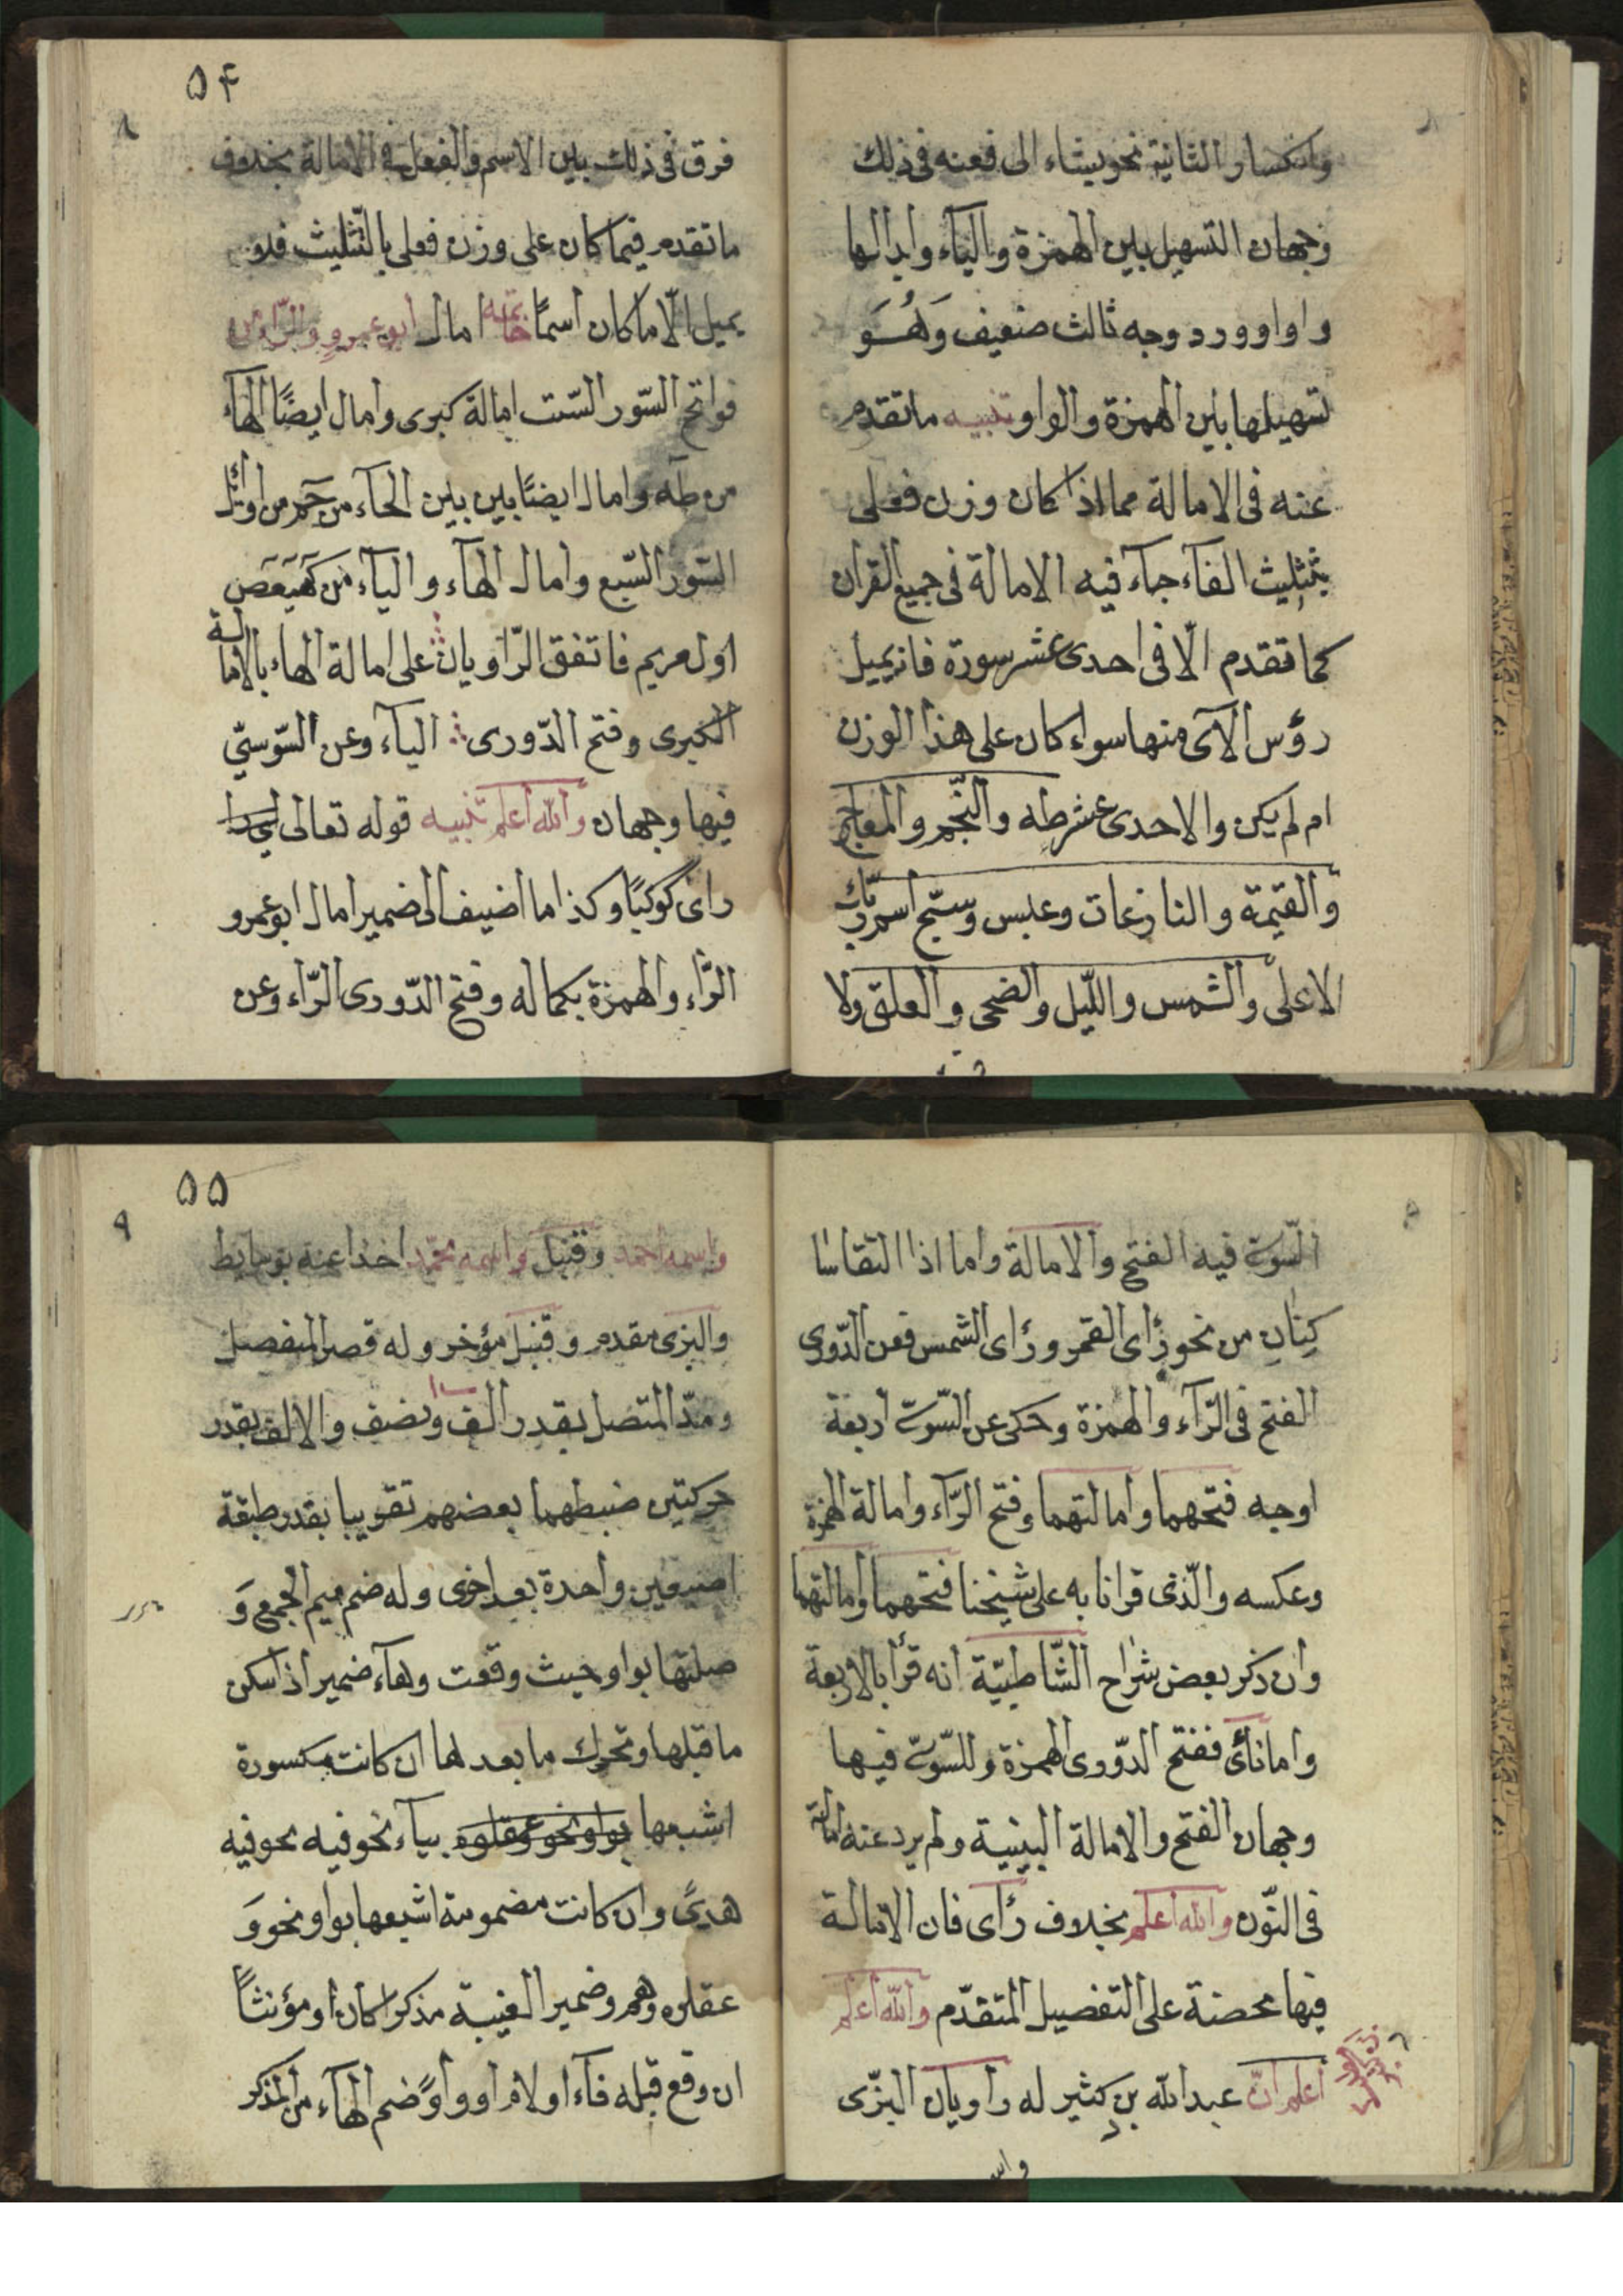 وانكسار الثانية نحو يشاء الى فعنه فى ذلك
وجهان التسهيل بين الهمزة والياء وابدالها
واوا وورد وجه ثالث ضعيف وَهُوَ
تسهيلها بين الهمزة والواو تنبيه ماتقدم
عنه فى الامالة مما اذا كان وزن فعلى
بثثليث الفآء جآء فيه الامالة فى جميع القران
كما تقدم الّا فى احدى عشر سورة فانه يميل
رؤس الآى منها سواء كان على هذا الوزن
ام لم يكن والاحدى عشر طه والنّجم والمعارج
والقيمة والنازعات وعبس وسبّح اسم ربّك
الاعلى والشمس واللّيل والضحى والعلق ولا
فرق
۵۴
۸
فرق فى ذلك بين الاسم والفعل فى الامالة بخلاف
ماتقدم فيما كان على وزن فعلى بالتّثليث فلا
يميل الّا ماكان اسمًا خاتمه امال ابو عمرو والرّا من
فواتح السّور السّت امالة كبرى وامال ايضًا الهآء
من طه وامال ايضًا بين بين الحآء من حم من اوائل
السّور السّبع وامال الهآء واليآء من كهيعص
اول مريم فاتفق الرّاويان على امالة الهاء بالامالة
الكبرى وفتح الدّورى اليآء وعن السّوسىّ
فيها وجهان والله اعلم تنبيه قوله تعالى
راى كوكبًا وكذا ما اضيف الى ضمير امال ابو عمرو
الرّاء والهمزة بكماله وفتح الدّورى الرّاء وعن
السّوسىّ فيه الفتح والامالة واما اذا التقا سا
كِنَانِ من نحو رَأى القمر ورَأى الشمس فعن الدّورى
الفتح فى الرّآء والهمزة وحكى عن السّوسىّ اربعة
اوجه فتحهما وامالتهما وفتح الرّآء وامالة الهمزة
وعكسه والّذى قرانا به على شيخنا فتحهما وامالتهما
وان ذكر بعض شرّاح الشّاطبيّة انه قرأ بالاربعة
واما نأى ففتح الدّورى الهمزة وللسّوسىّ فيها
وجهان الفتح والامالة البينية ولم يرد عنه امالة
فى النّون والله اعلم بخلاف رَأى فان الامالة
فيها محضة على التفصيل المتقدّم والله اعلم
اعلم انّ عبد الله بن كثير له راويان البزّى
واسمه
۵۵
۹
واسمه احمد وقنبل واسمه محمّد اخذا عنه بوسايط
والبزى مقدم وقنبل مؤخر وله قصر المنفصل
ومدّ المتصل بقدر الف ونصف والالف بقدر
حركتين ضبطهما بعضهم تقريبا بقدر طبقة
اصبعين واحدة بعد اخرى وله ضم ميم الجمع وَ
صلتها بواو حيث وقعت وهآء ضمير اذا سكن
ماقبلها وتحرك مابعدها ان كانت مكسورة
اشبعها بواو نحو عقلوه بيآء نحو فيه نحو فيه
هدىً وان كانت مضمومة اشبعها بواو نحو وَ
عقلوه وهم وضمير الغيبة مذكرا كان او مؤنثاً
ان وقع قبله فآء او لام او واوً ضم الهآء من المذكر